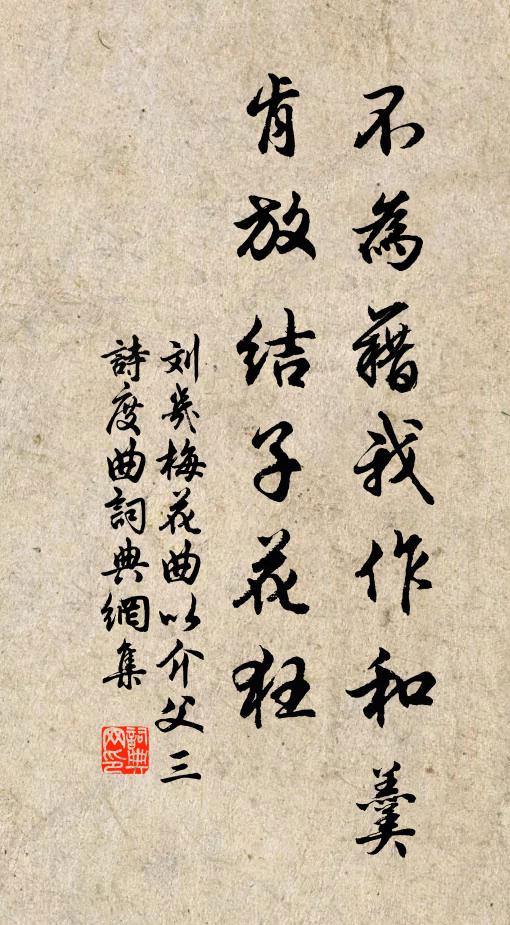 不為藉我作和羹
肯放結子花狂
刘幾梅花曲以介父三
詩度曲詞典網集
詞典网印